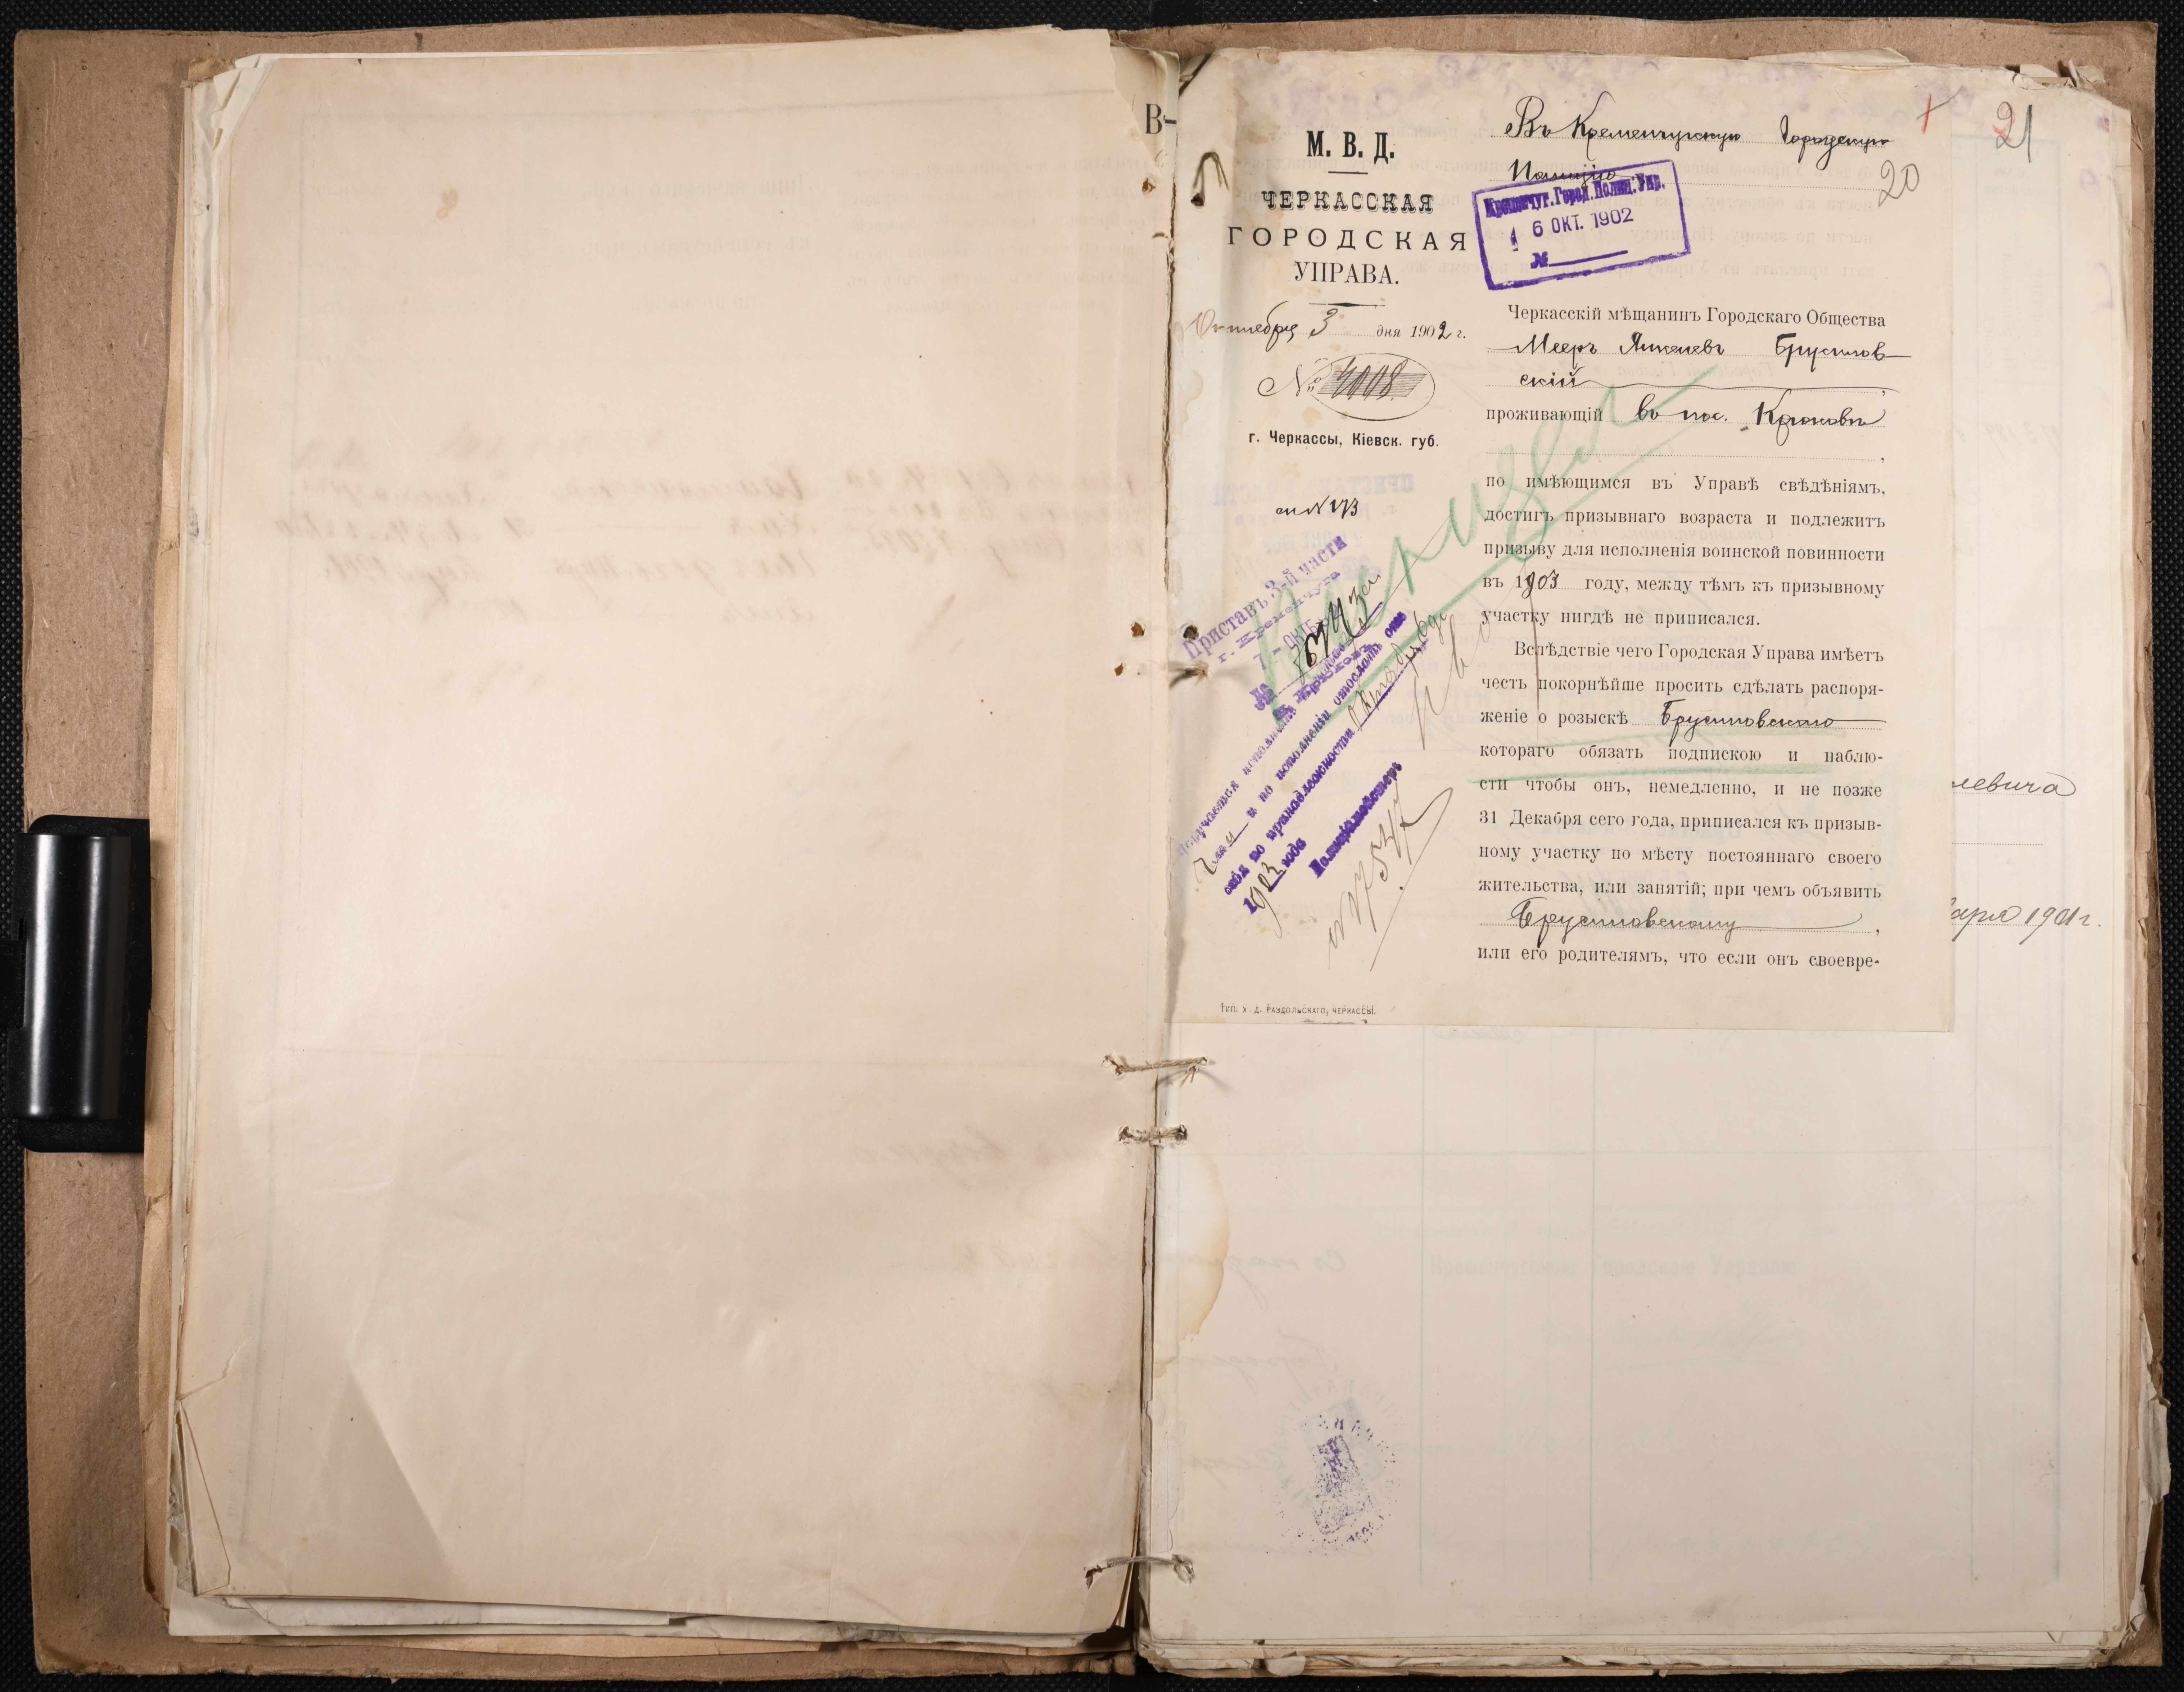 В-
21
20
М. В. Д.
ЧЕРКАССКАЯ
ГОРОДСКАЯ
УПРАВА.
Октября 3 дня 1902 г.
№ 4008.
г. Черкассы, Кіевск. губ.
Въ Кременчугскую Городскую
Полицію
Кременчуг. Город. Полиц. Упр.
6 ОКТ. 1902
№
Черкасскій мѣщанинъ Городскаго Общества
Мееръ Янкелевъ Брусилов-
скій
проживающій въ пос. Крюковѣ
,
по имѣющимся въ Управѣ свѣдѣніямъ,
достигъ призывнаго возраста и подлежитъ
призыву для исполненія воинской повинности
въ 1903 году, между тѣмъ къ призывному
участку нигдѣ не приписался.
Вслѣдствіе чего Городская Управа имѣетъ
честь покорнѣйше просить сдѣлать распоря-
женіе о розыскѣ Брусиловскаго
котораго обязать подпискою и наблю-
сти чтобы онъ, немедленно, и не позже
31 Декабря сего года, приписался къ призыв-
ному участку по мѣсту постояннаго своего
жительства, или занятій; при чемъ объявить
Брусиловскому ,
или его родителямъ, что если онъ своевре-
Приставъ 3-й части
г. Кременчуга
7 - ОКТЯ
№
и по исполненіи отослать отъ
себя по принадлежности
1903 года
Полиціймейстеръ
№ 17547
Тип. Х. Д. РАЗДОЛЬСКАГО, ЧЕРКАССЫ.
левича
аря 1901 г.